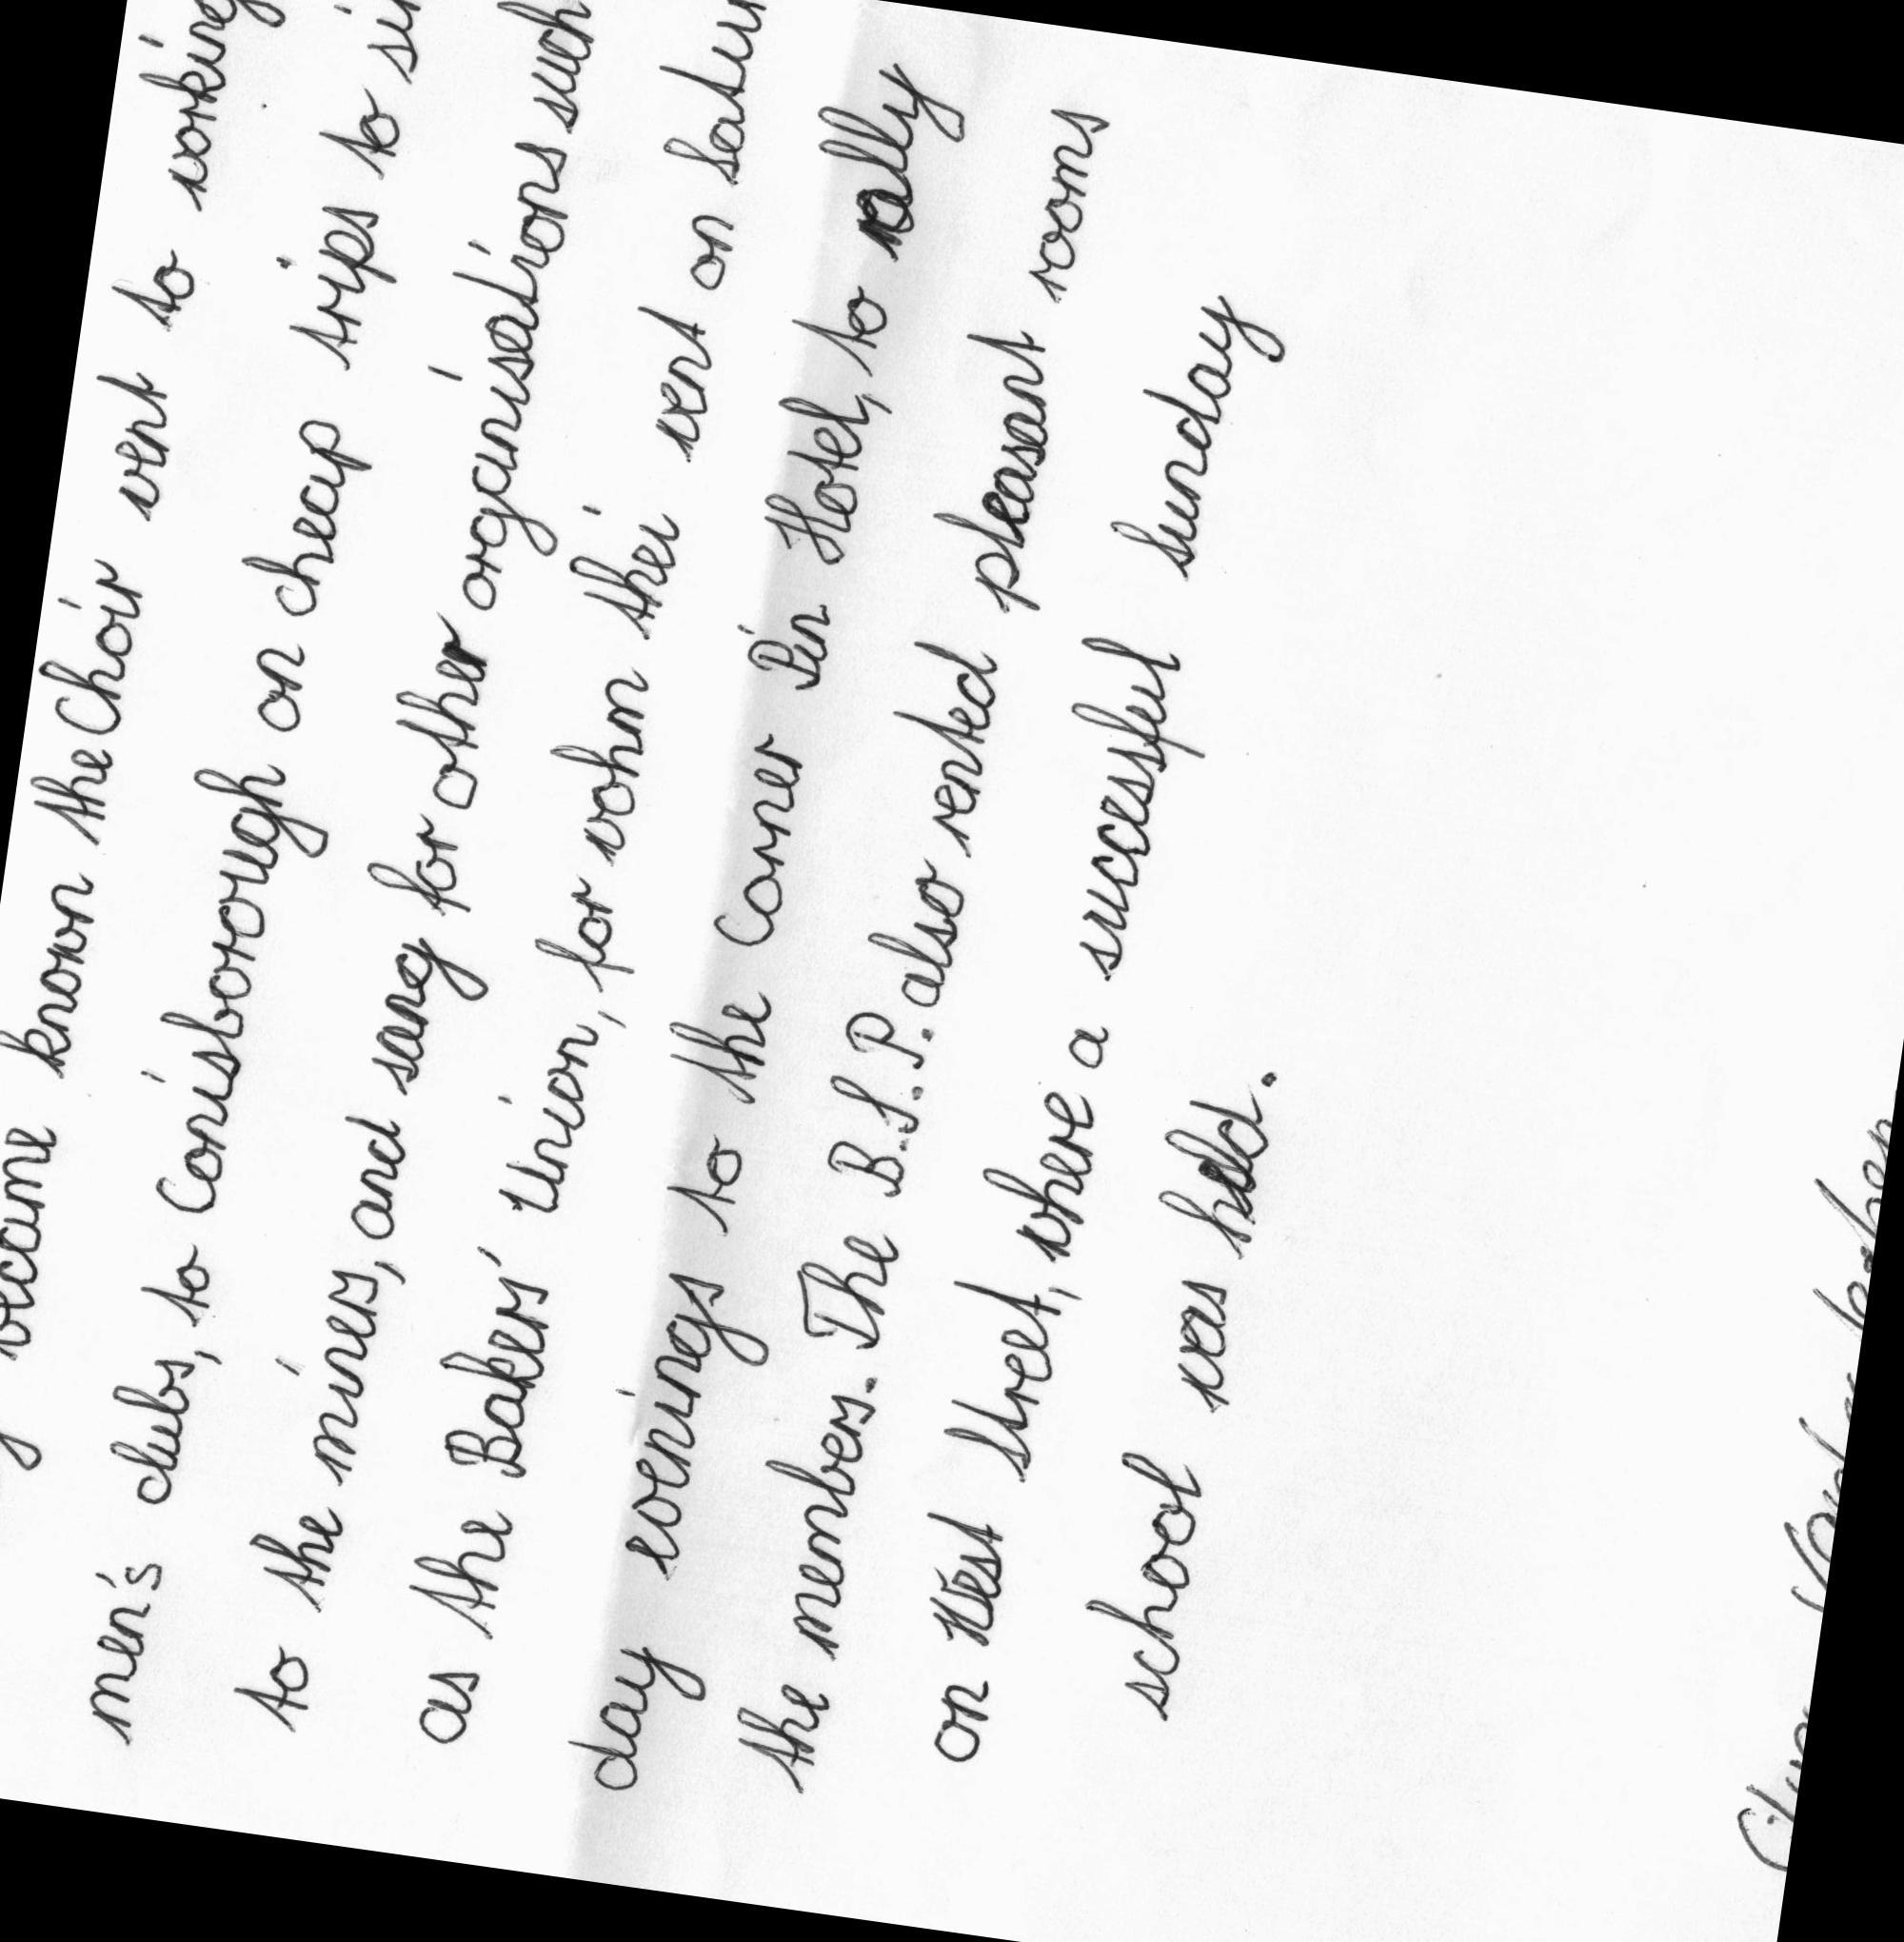 became known the Choir went to working
men's clubs, to Conisborough on cheap trips to
to the miners, and sang for other organisations such
as the Bakers' Union, for wohm thei went on Satur
day evenings to the Corner Pin Hotel, to rally
the members. The B.S.P. also rented pleasant rooms
on West Street, where a successful Sunday
school was held.